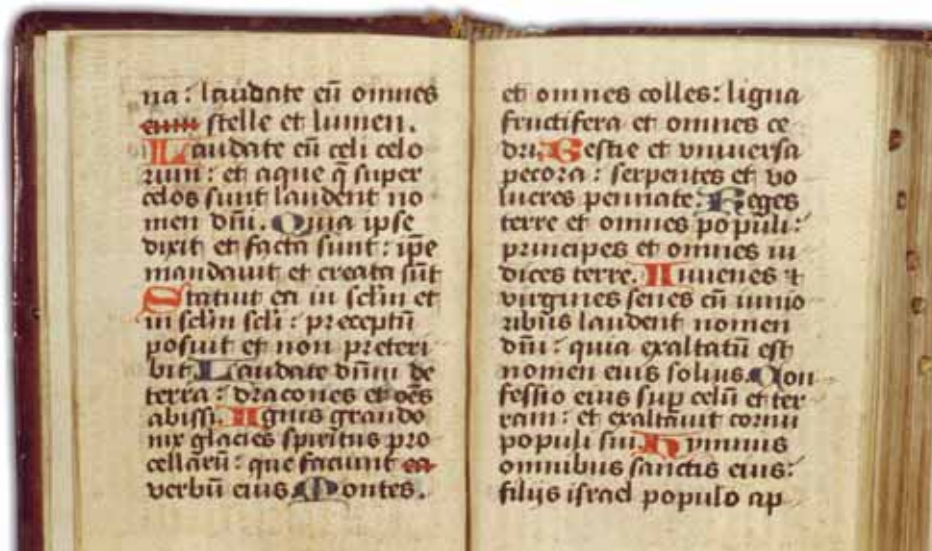 na: laudate eū omnes
eum stelle et lumen.
Laudate eū celi celo
rum: et aque q̄ super
celos sunt laudent no
men dn̄i. Quia ipse
dixit et facta sunt: ip̄e
mandauit et creata sūt
Statuit ea in sclm̄ et
in sclm̄ scli: preceptū
posuit et non preteri
bit. Laudate dn̄m de
terra: dracones et oēs
abissi. Ignis grando
nix glacies spiritus pro
cellarū: que faciunt ea
verbū eius Montes.
et omnes colles: ligna
fructifera et omnes ce
dri. Bestie et vniuersa
pecora: serpentes et vo
lucres pennate. Reges
terre et omnes populi:
principes et omnes iu
dices terre. Iuuenes ⁊
virgines senes cū iunio
ribus laudent nomen
dn̄i: quia exaltatū est
nomen eius solius. Con
fessio eius sup celū et ter
ram: et exaltauit cornu
populi sui Hymnus
omnibus sanctis eius:
filijs israel populo ap